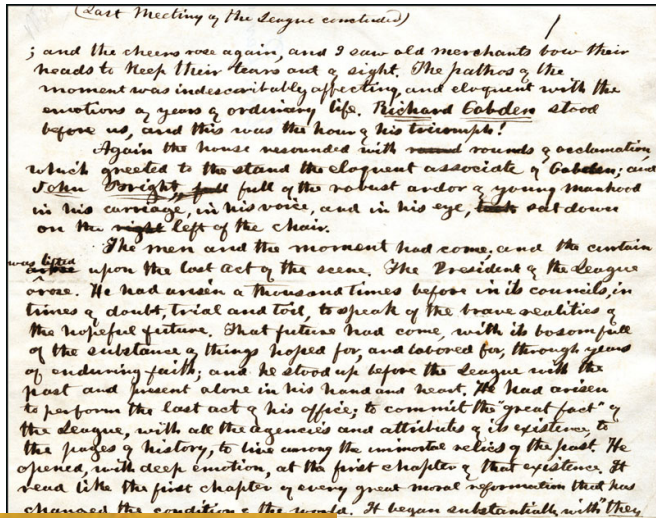 (Last Meeting of the League concluded) 1
; and the cheers rose again, and I saw old merchants bow their
heads to keep their tears out of sight. The pathos of the
moment was indescribably affecting, and eloquent with the
emotions of years of ordinary life. Richard Cobden stood
before us, and this was the hour of his triumph!
Again the house resounded with round rounds of acclamation
which greeted to the stand the eloquent associate of Cobden; and
John Bright, full full of the robust ardor of young manhood
in his carriage, in his voice, and in his eye, took sat down
on the right left of the chair.
The men and the moment had come, and the curtain
was lifted
arose upon the last act of the scene. The President of the League
arose. He had arisen a thousand times before in its councils, in
times of doubt, trial and toil, to speak of the brave realities of
the hopeful future. That future had come, with its bosom full
of the substance of things hoped for, and labored for, through years
of enduring faith; and he stood up before the League with the
past and present alone in his hand and heart. He had arisen
to perform the last act of his office; to commit the "great fact" of
the League, with all the agencies and attributes of its existence, to
the pages of history, to live among the immortal relics of the past. He
opened, with deep emotion, at the first chapter of that existence. It
read like the first chapter of every great moral reformation that has
changed the condition of the world. It began substantially with "they